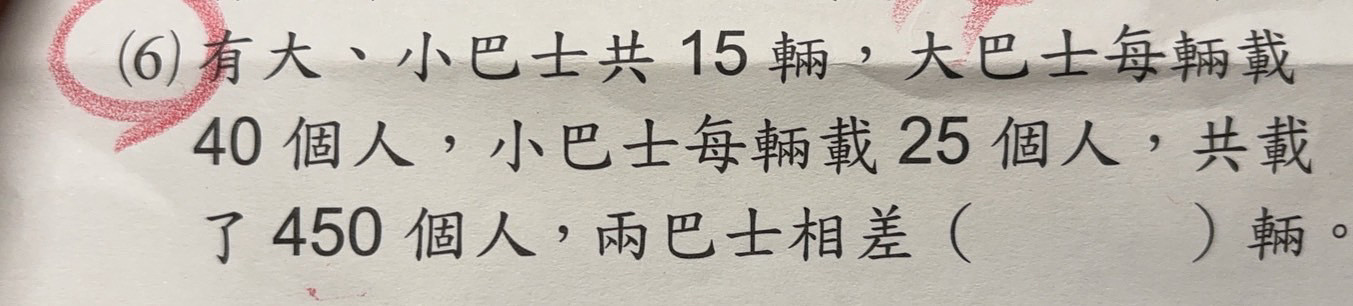 (6) 有大、小巴士共 15 輛，大巴士每輛載
40 個人，小巴士每輛載 25 個人，共載
了 450 個人，兩巴士相差（　　　）輛。